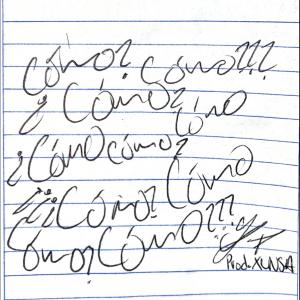 Cómo? Cómo???
¿Cómo? Cómo
¿Cómo cómo?
¿¿¿Cómo? Cómo
Cómo? Cómo???
Prod. XUNSA